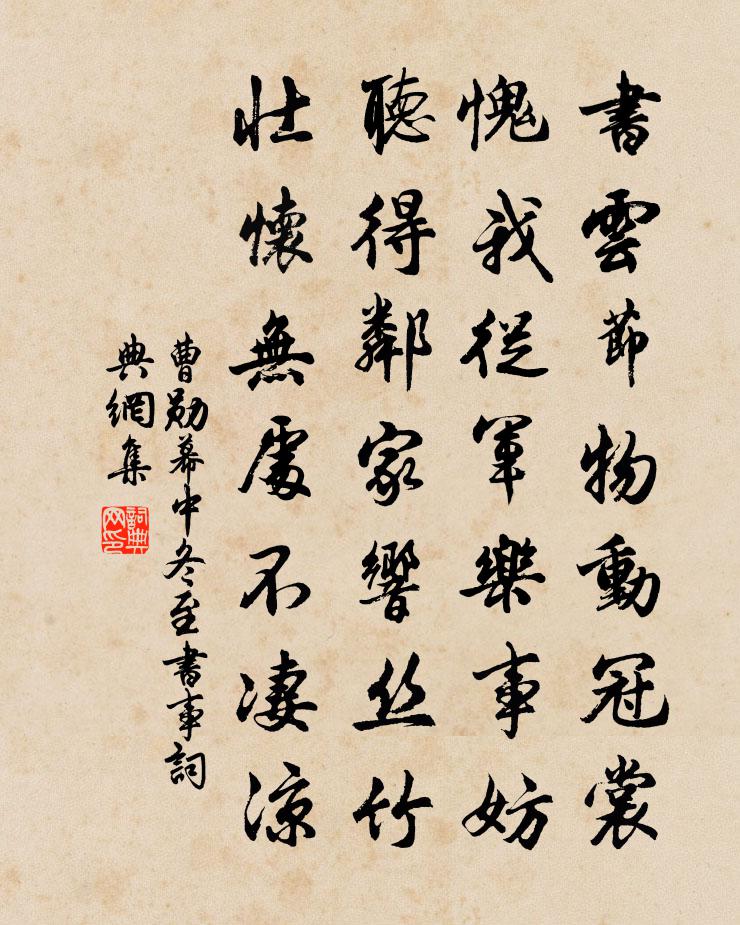 書雲節物動冠裳
愧我從軍樂事妨
聽得鄰家響丝竹
壯懷無處不淒涼
曹勛幕中冬至書事詞
典網集
詞典
网印